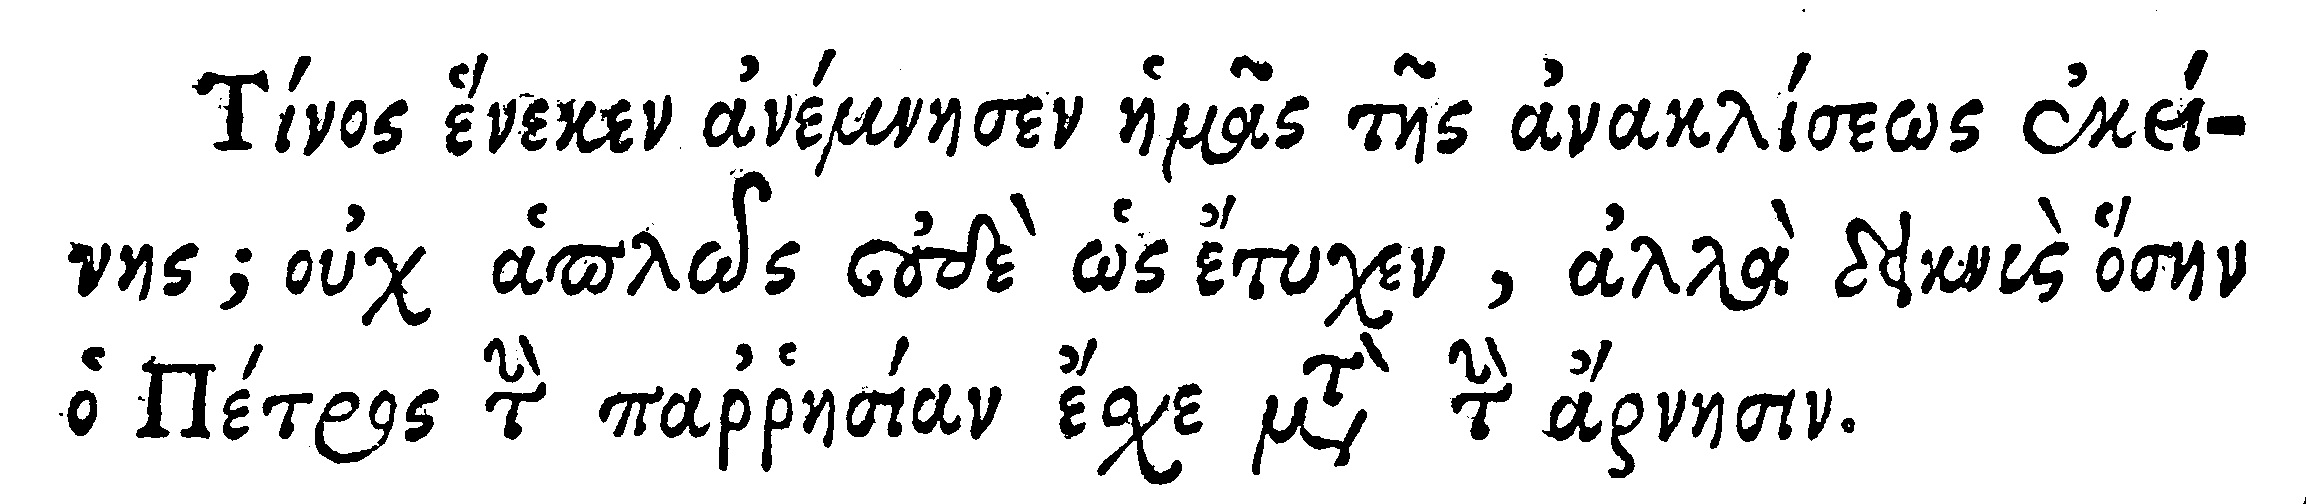 Τίνος ἕνεκεν ἀνέμνησεν ἡμᾶς τῆς ἀνακλίσεως ἐκεί-
νης; οὐχ ἁπλῶς οὐδὲ ὡς ἔτυχεν, ἀλλὰ δεικνὺς ὅσην
ὁ Πέτρος τὴν παῤῥησίαν ἔχε μετὰ τὴν ἄρνησιν.